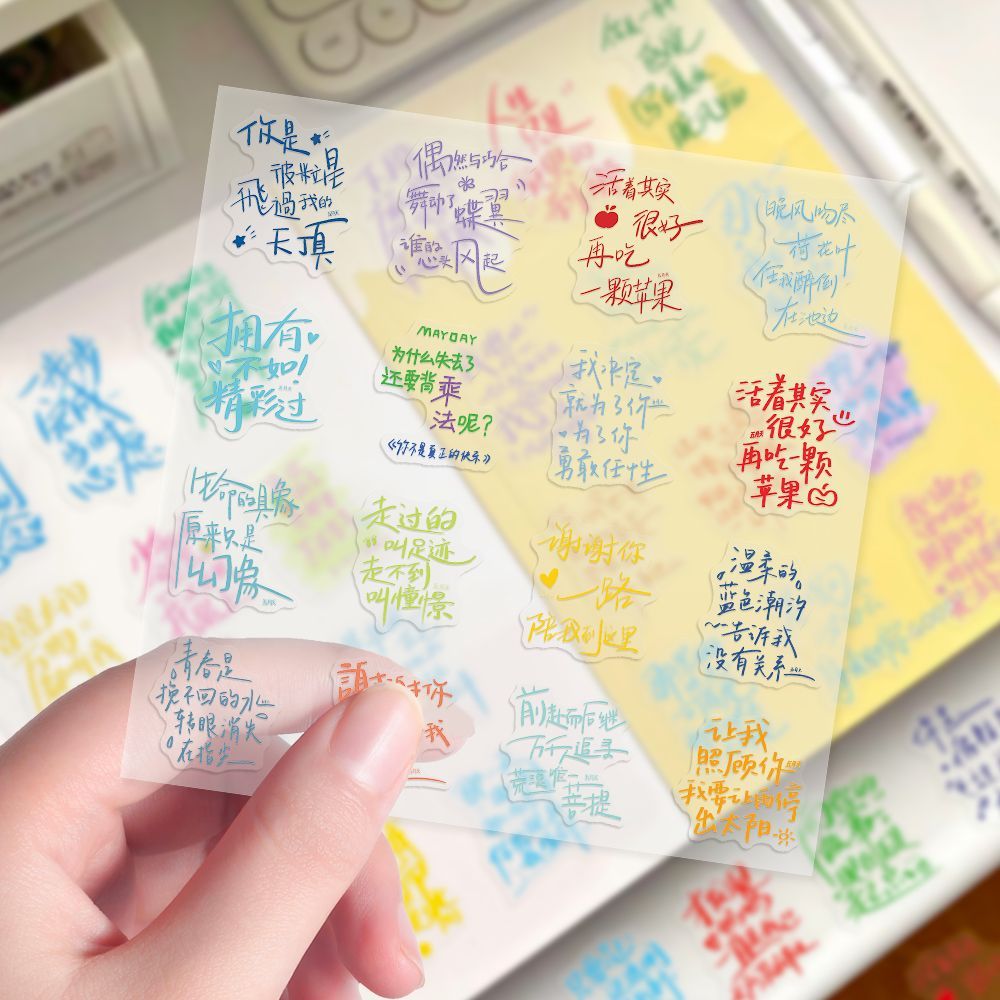 你是
被粒星
飛過我的
天頂
偶然与巧合
舞动了
蝶翼
谁的
心头
风起
活着其实
很好
再吃
一颗苹果
晚风吻尽
荷花叶
任我醉倒
在池边
拥有
不如
精彩过
MAYDAY
为什么失去了
还要背乘
法呢?
《你不是真正的快乐》
我决定
就为了你
为了你
勇敢任性
活着其实
很好
再吃一颗
苹果
生命的具象
原来只是
幻象
走过的
叫足迹
走不到
叫憧憬
谢谢你
一路
陪我到这里
温柔的
蓝色潮汐
告诉我
没有关系
青春是
挽不回的水
转眼消失
在指尖
你
我
前赴而后继
万千人追寻
荒漠唯一
菩提
让我
照顾你
我要让雨停
出太阳